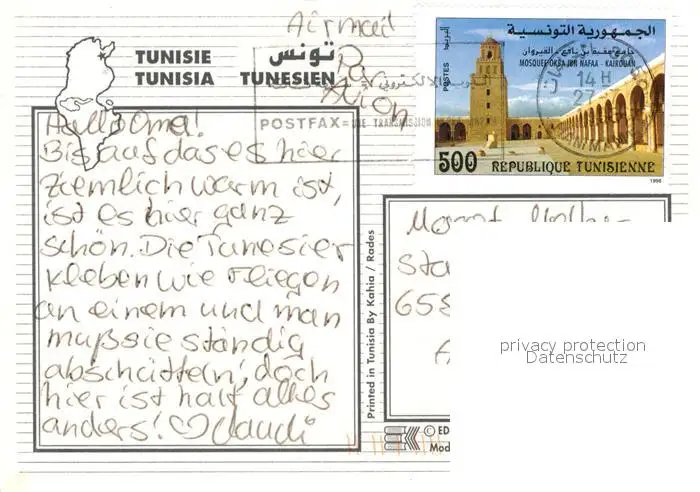 Airmail
Par
Avion
TUNISIE تونس
TUNISIA TUNESIEN
POSTFAX=UNE TRANSMISSION
الجمهورية التونسية
جامع عقبة بن نافع - القيروان
MOSQUEE OKBA IBN NAFAA - KAIROUAN
POSTES
البريد
14 H
27
500 REPUBLIQUE TUNISIENNE
1996
Hallo Oma!
Bis auf das es hier
ziemlich warm ist,
ist es hier ganz
schön. Die Tunesier
kleben wie Fliegen
an einem und man
muß sie ständig
abschütteln, doch
hier ist halt alles
anders! ♡ Claudi
Printed in Tunisia By Kahia / Rades
Sta
655
A
© ED
Mod
privacy protection
Datenschutz